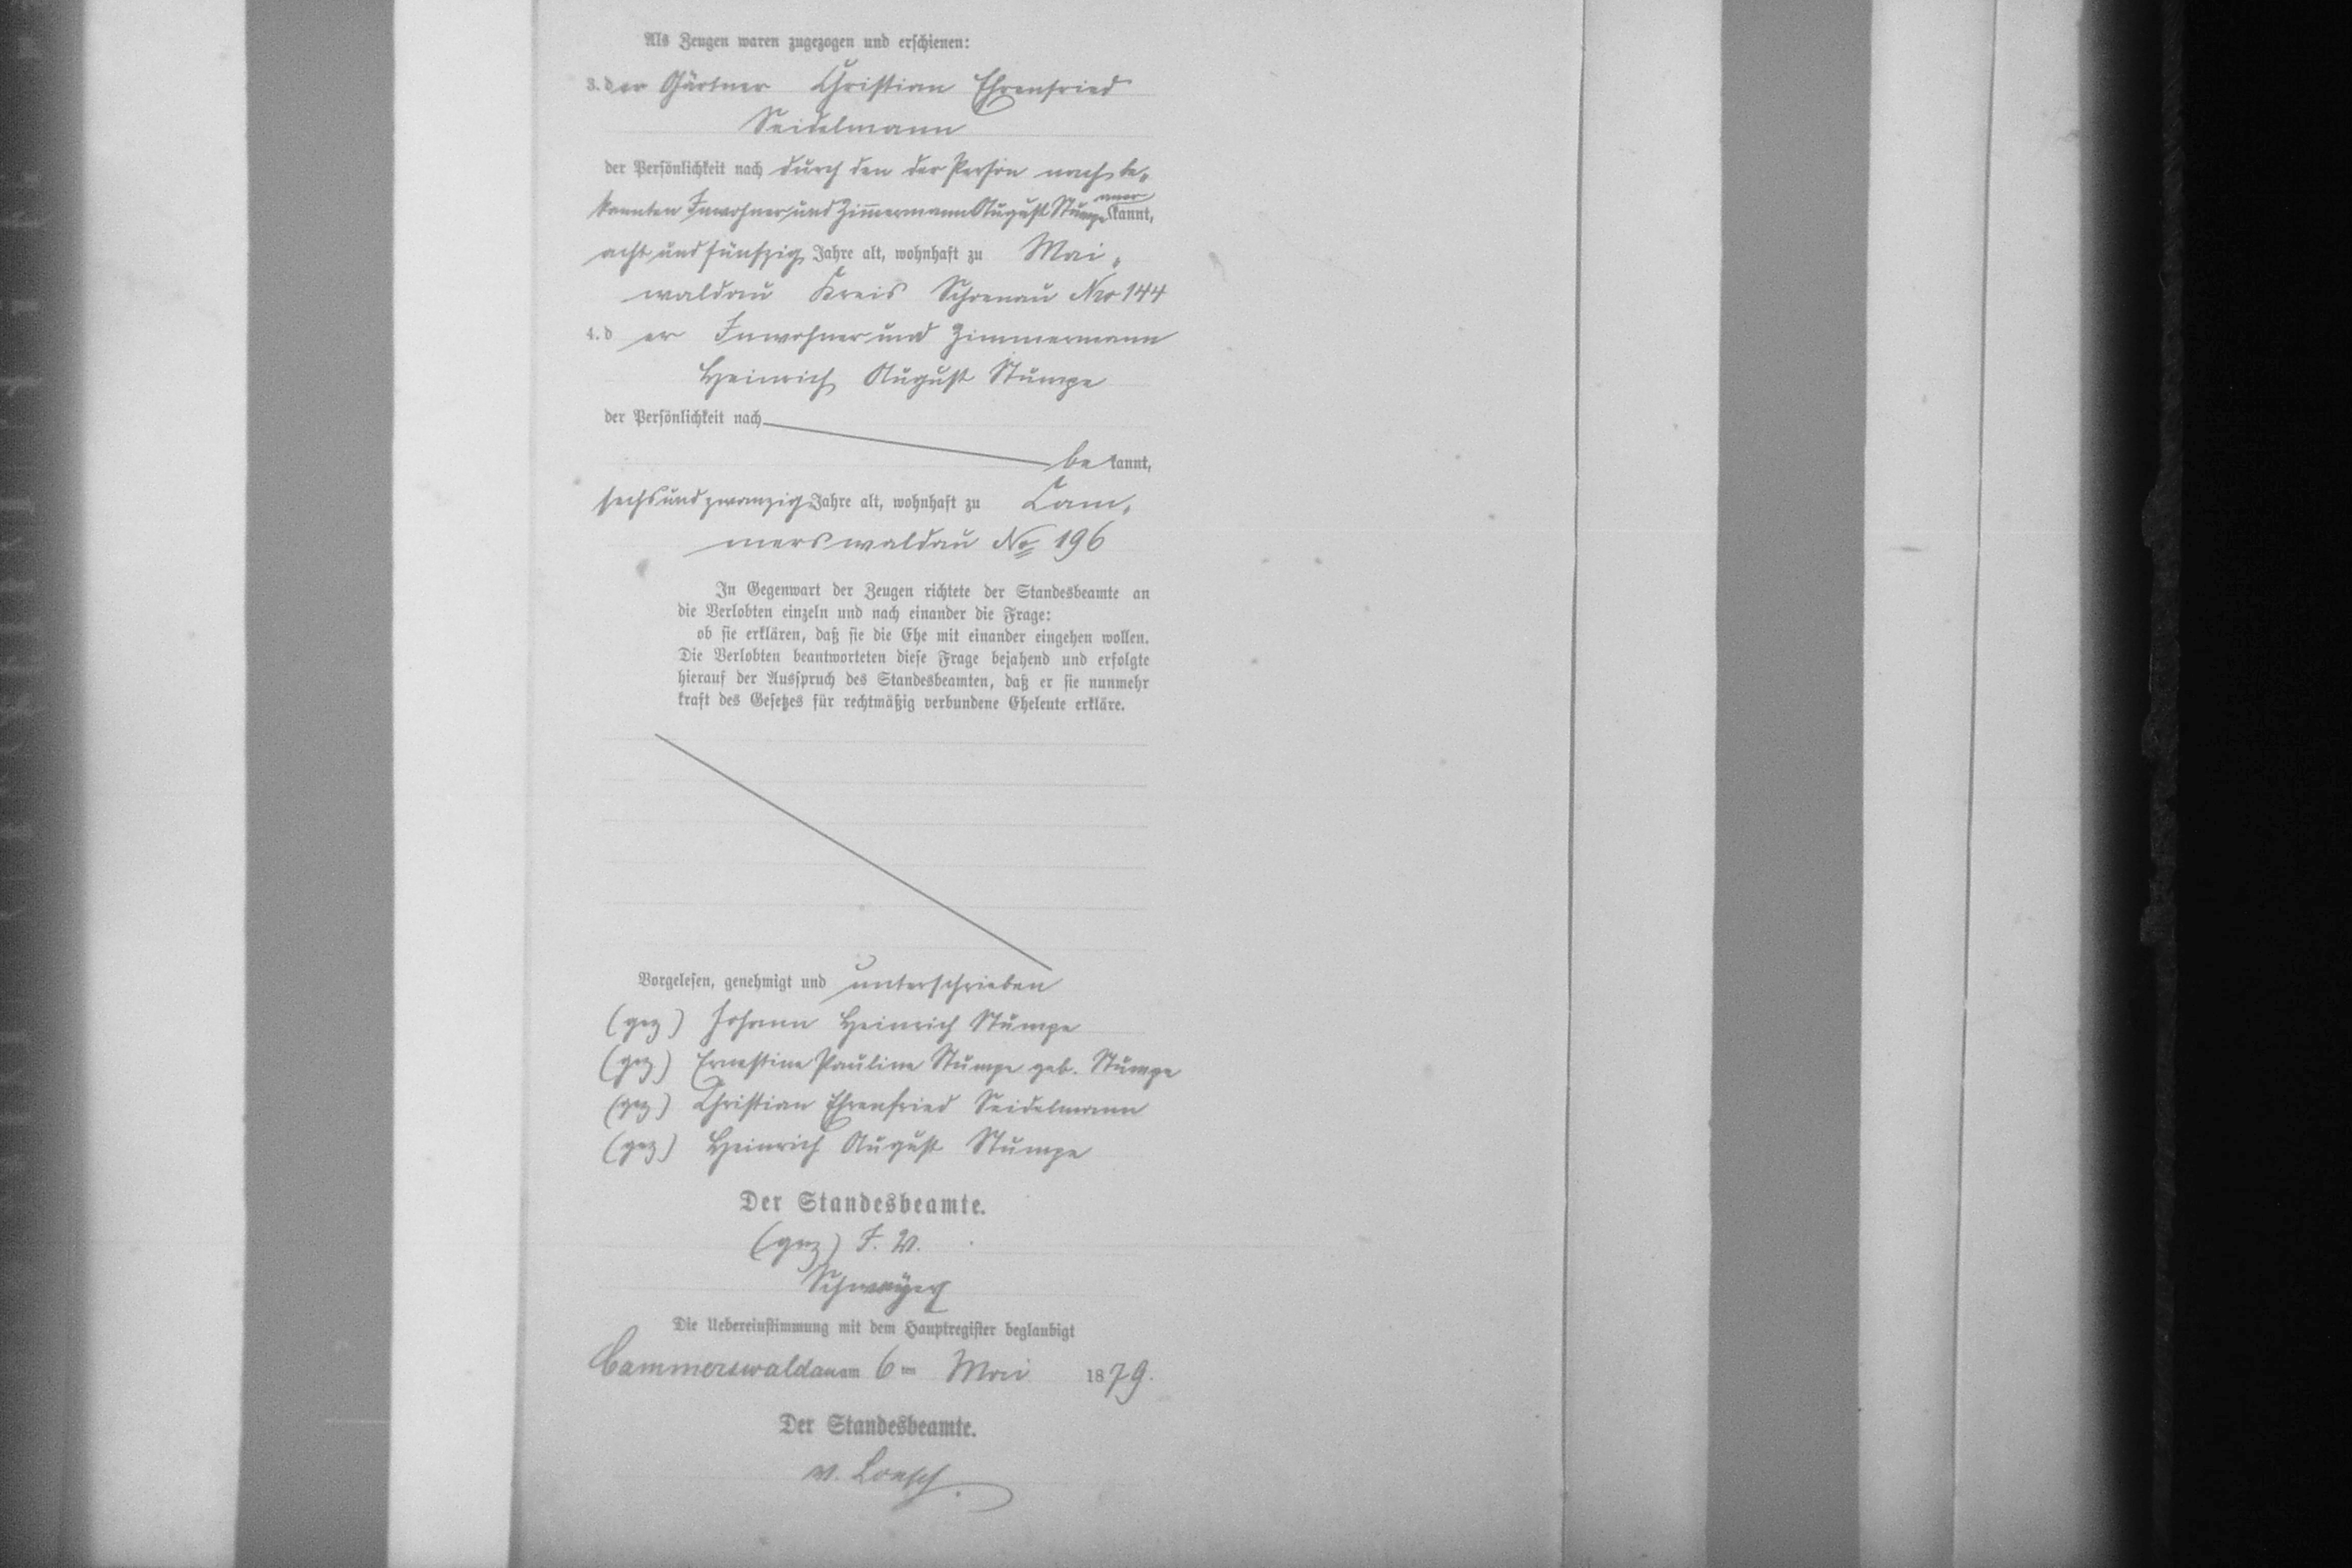 Als Zeugen waren zugezogen und erschienen:
3. der Gärtner Christian Ehrenfried
Seidelmann
der Persönlichkeit nach durch den der Person nach be„
kannten Inwohner und Zimmermann August Stumpe aner
kannt,
acht und fünfzig Jahre alt, wohnhaft zu Mai„
waldau Kreis Schoenau Nro 144
4. d er Inwohner und Zimmermann
Heinrich August Stumpe
der Persönlichkeit nach
be kannt,
sechsundzwanzig Jahre alt, wohnhaft zu Cam„
merswaldau No 196
In Gegenwart der Zeugen richtete der Standesbeamte an
die Verlobten einzeln und nach einander die Frage:
ob sie erklären, daß sie die Ehe mit einander eingehen wollen.
Die Verlobten beantworteten diese Frage bejahend und erfolgte
hierauf der Ausspruch des Standesbeamten, daß er sie nunmehr
kraft des Gesetzes für rechtmäßig verbundene Eheleute erkläre.
Vorgelesen, genehmigt und unterschrieben
(gez) Johann Heinrich Stumpe
(gez) Ernestine Pauline Stumpe geb. Stumpe
(gez) Christian Ehrenfried Seidelmann
(gez) Heinrich August Stumpe
Der Standesbeamte.
(gez) I. V.
Die Uebereinstimmung mit dem Hauptregister beglaubigt
Cammerswaldau am 6ten Mai 1879.
Der Standesbeamte.
v. Loesch.